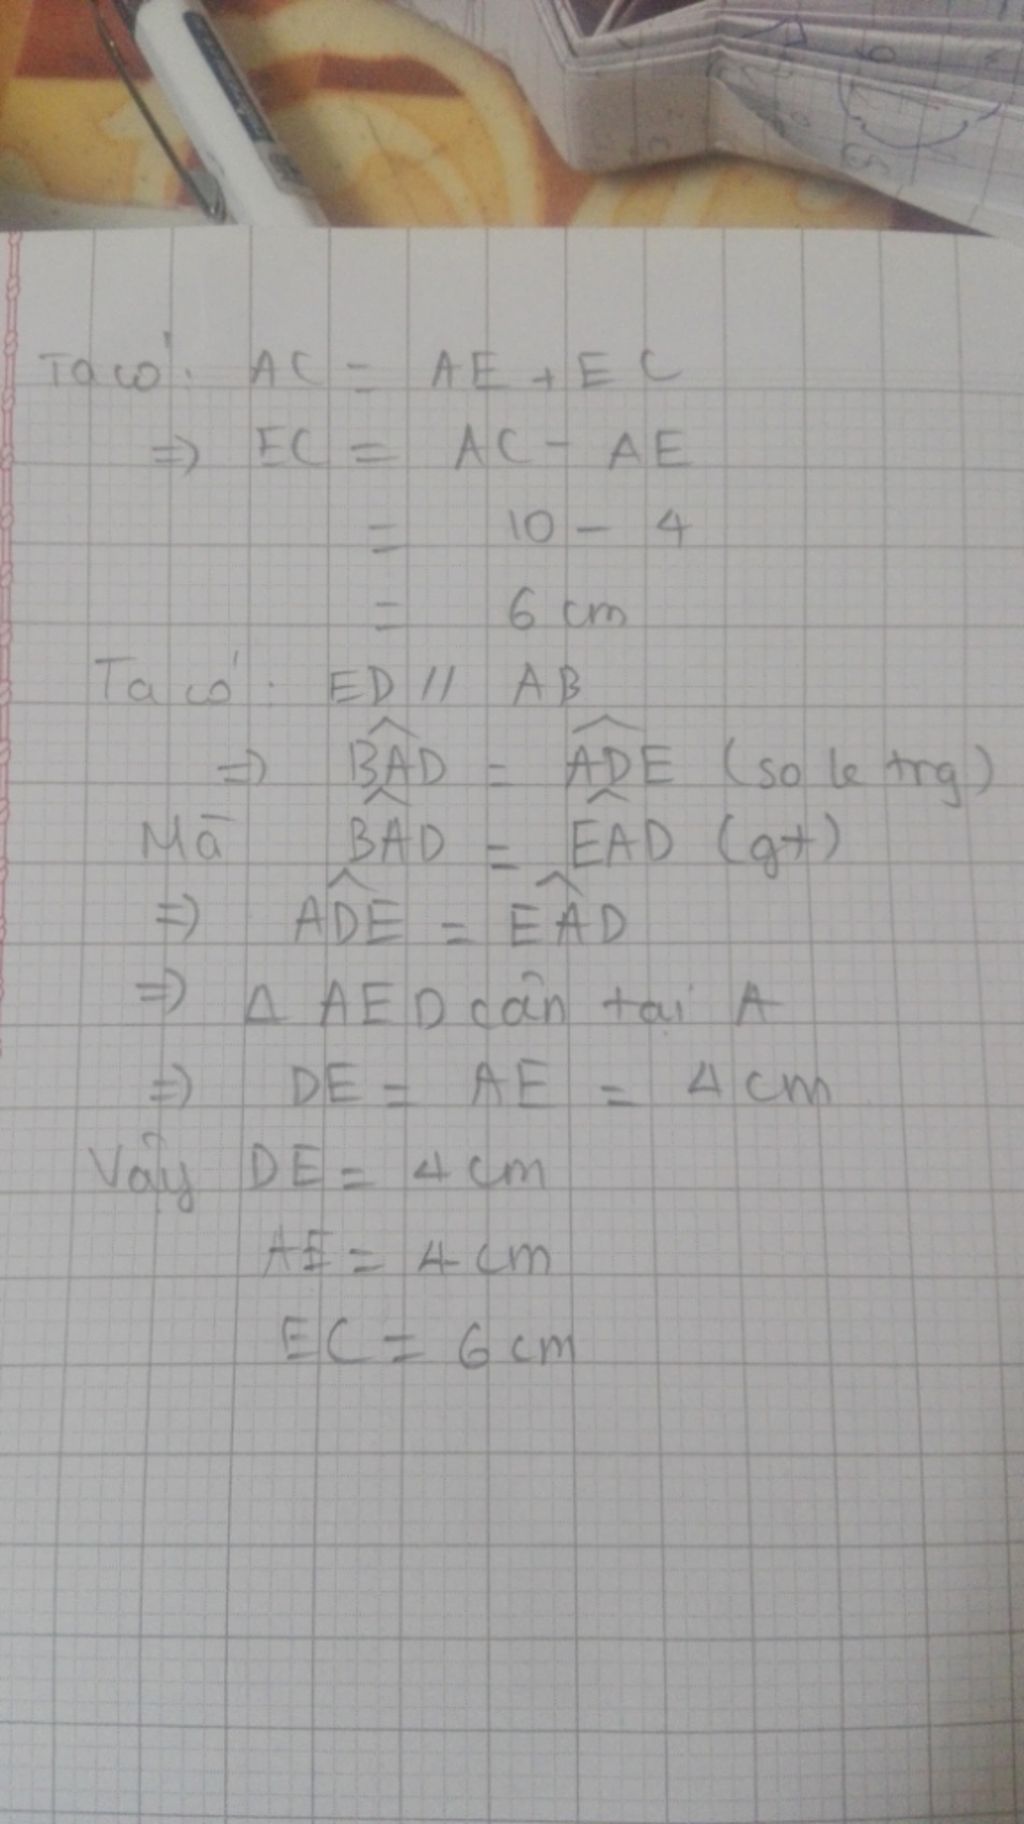 Ta có: AC = AE + EC
=> EC = AC - AE
= 10 - 4
= 6 cm
Ta có: ED // AB
=> BAD = ADE (so le trg)
Mà BAD = EAD (gt)
=> ADE = EAD
=> Δ AED cân tai A
=> DE = AE = 4 cm
Vậy DE = 4 cm
AE = 4 cm
EC = 6 cm